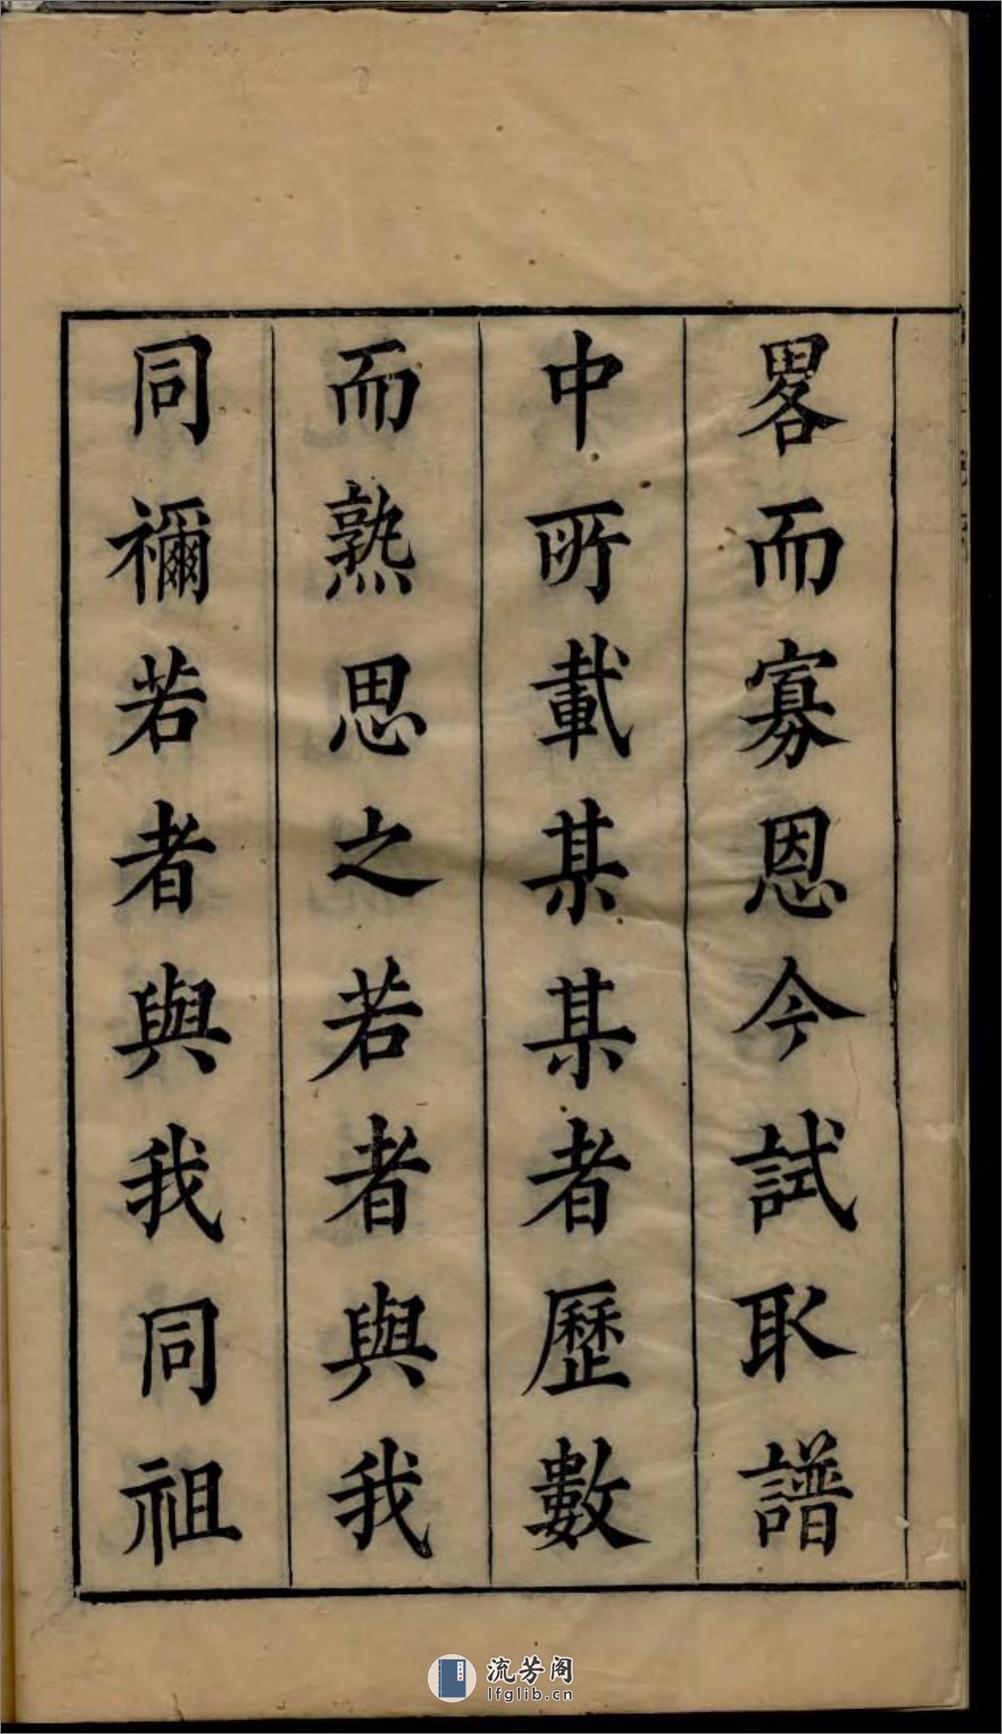 畧而寡恩今試取譜
中所載某某者歷數
而熟思之若者與我
同禰若者與我同祖
流芳阁
lfglib.cn